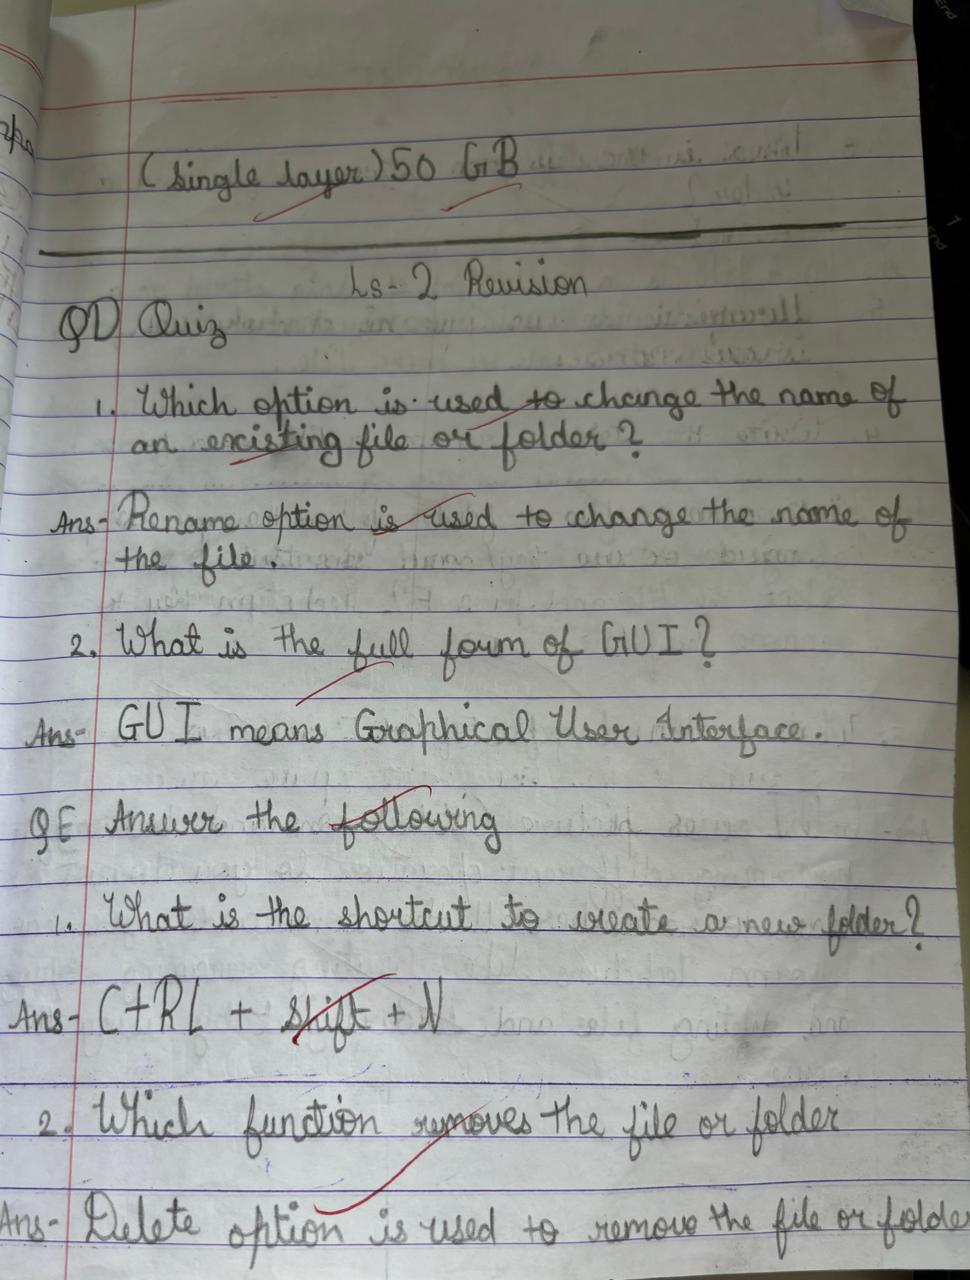 (single layer) 50 GB
Ls-2 Revision
QD Quiz
1. Which option is used to change the name of
an excisting file or folder?
Ans- Rename option is used to change the name of
the file.
2. What is the full form of GUI?
Ans- GUI means Graphical User Interface.
QE Answer the following
1. What is the shortcut to create a new folder?
Ans- CtRL + shift + N
2. Which function removes the file or folder
Ans- Delete option is used to remove the file or folder